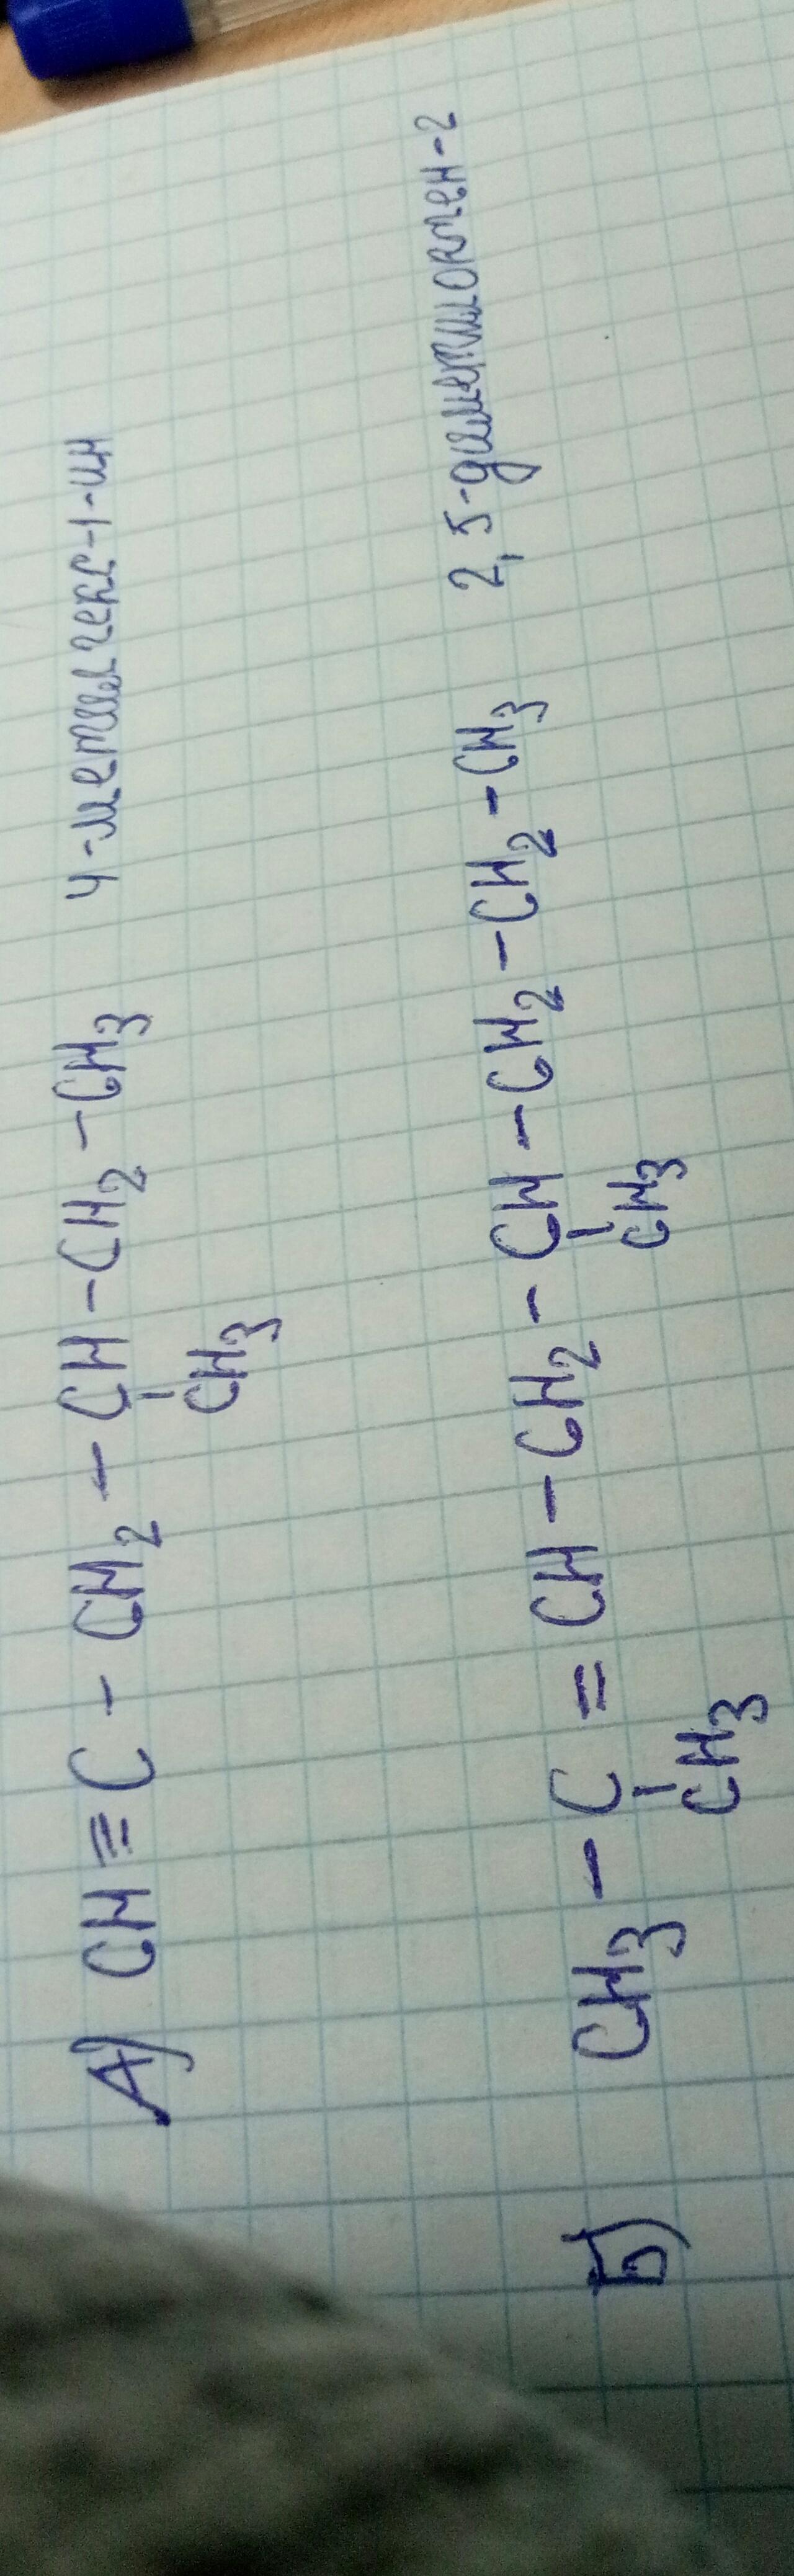 А) CH≡C-CH₂-CH-CH₂-CH₃ 4-метилгекс-1-ин
CH₃
Б) CH₃-C=CH-CH₂-CH-CH₂-CH₂-CH₃ 2,5-диметилоктен-2
CH₃ CH₃